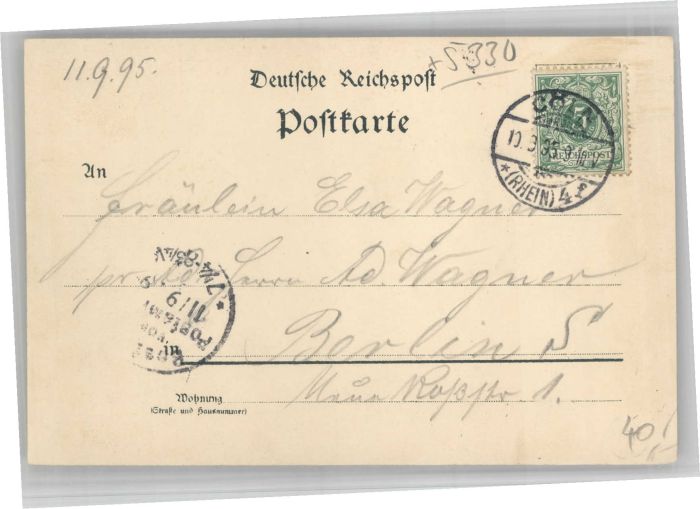 11.9.95.
+5830
Deutsche Reichspost
Postkarte
CÖLN
10.9.95.
REICHSPOST
*(RHEIN) 4
An
Fräulein Elsa Wagner
Herrn Ad. Wagner
in Berlin S
Neue Roßstr. 1.
Wohnung
(Straße und Hausnummer)
11/9
*7¼-8½V*
40,-